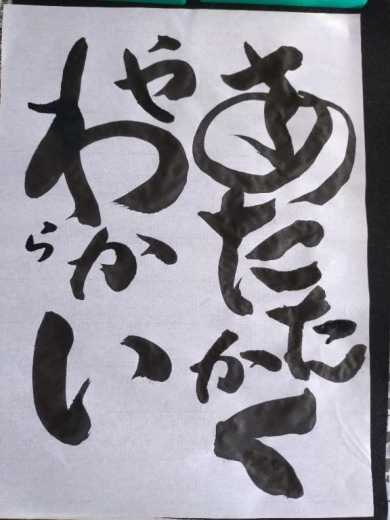 あたたかく
やわらかい